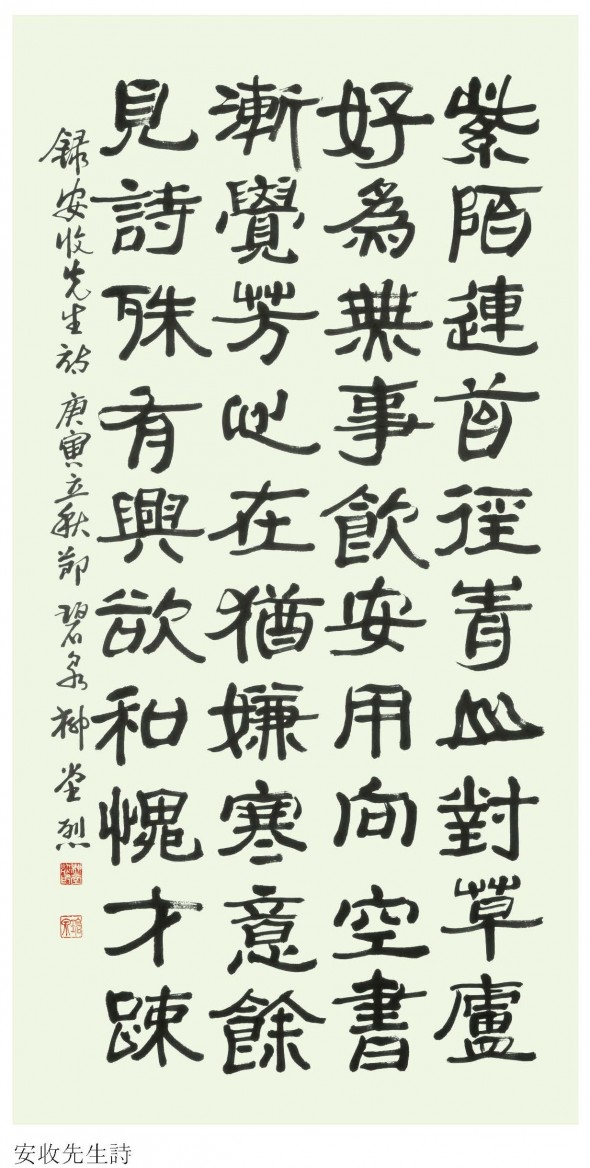 紫陌連首徑青山對草廬
好爲無事飮安用向空書
漸覺芳心在猶嫌寒意餘
見詩殊有興欲和愧才踈
録安收先生詩 庚寅立秋節 碧泉 柳堂烈
安收先生詩